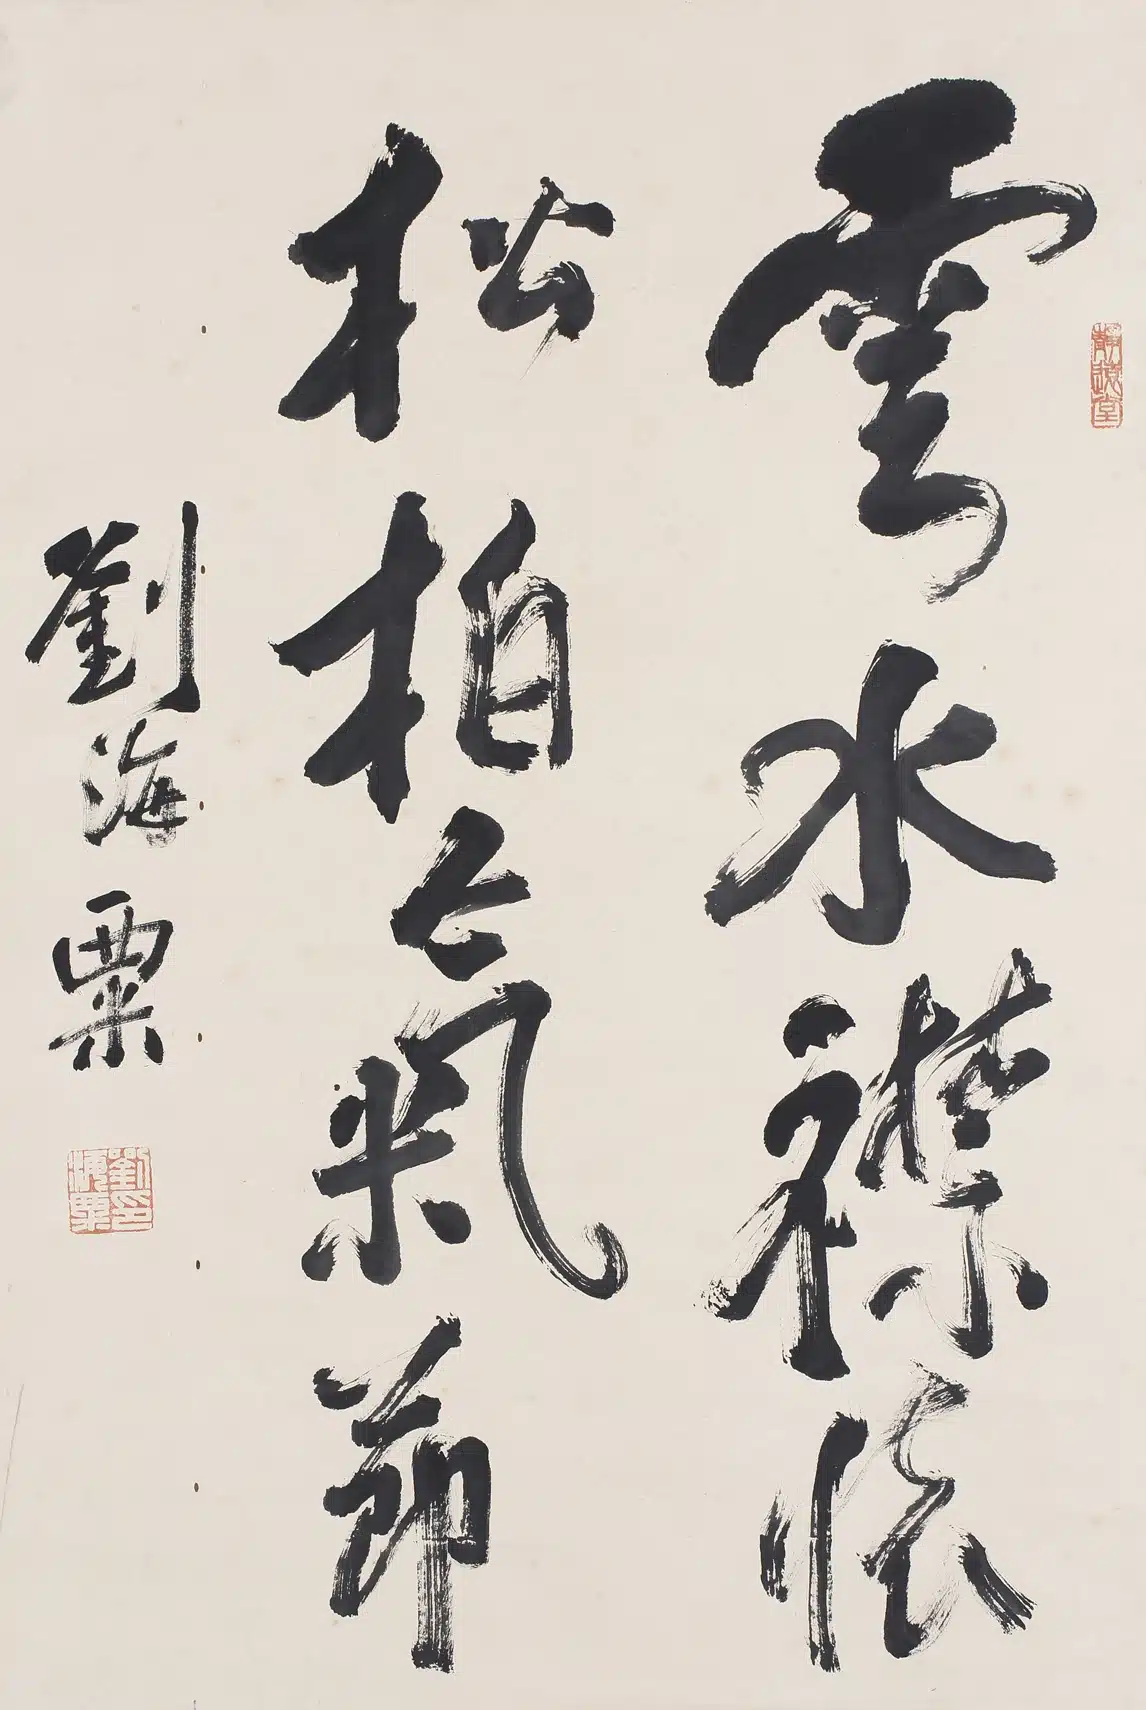 雲水襟懷
松柏氣節
劉海粟
劉海粟印